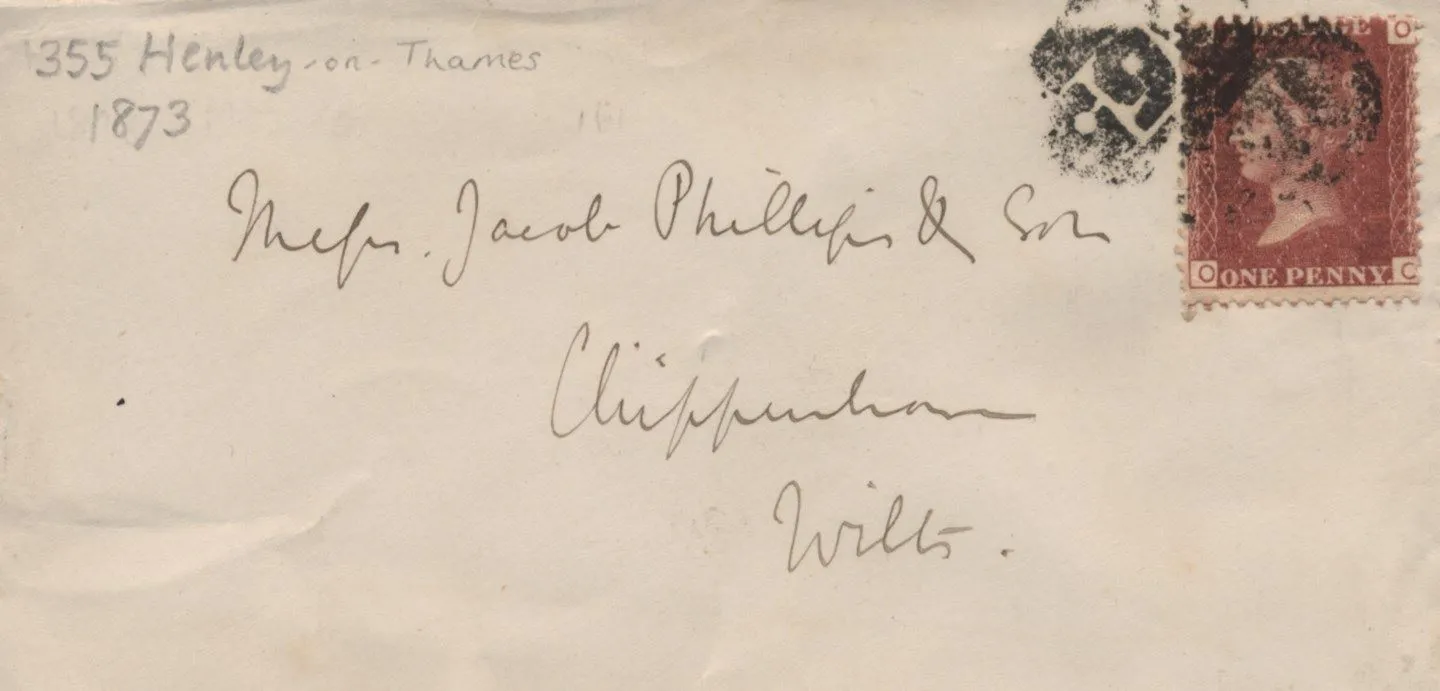 355 Henley-on-Thames
1873
Messrs. Jacob Phillips & Son
Chippenham
Wilts.
POSTAGE
O
O ONE PENNY. C